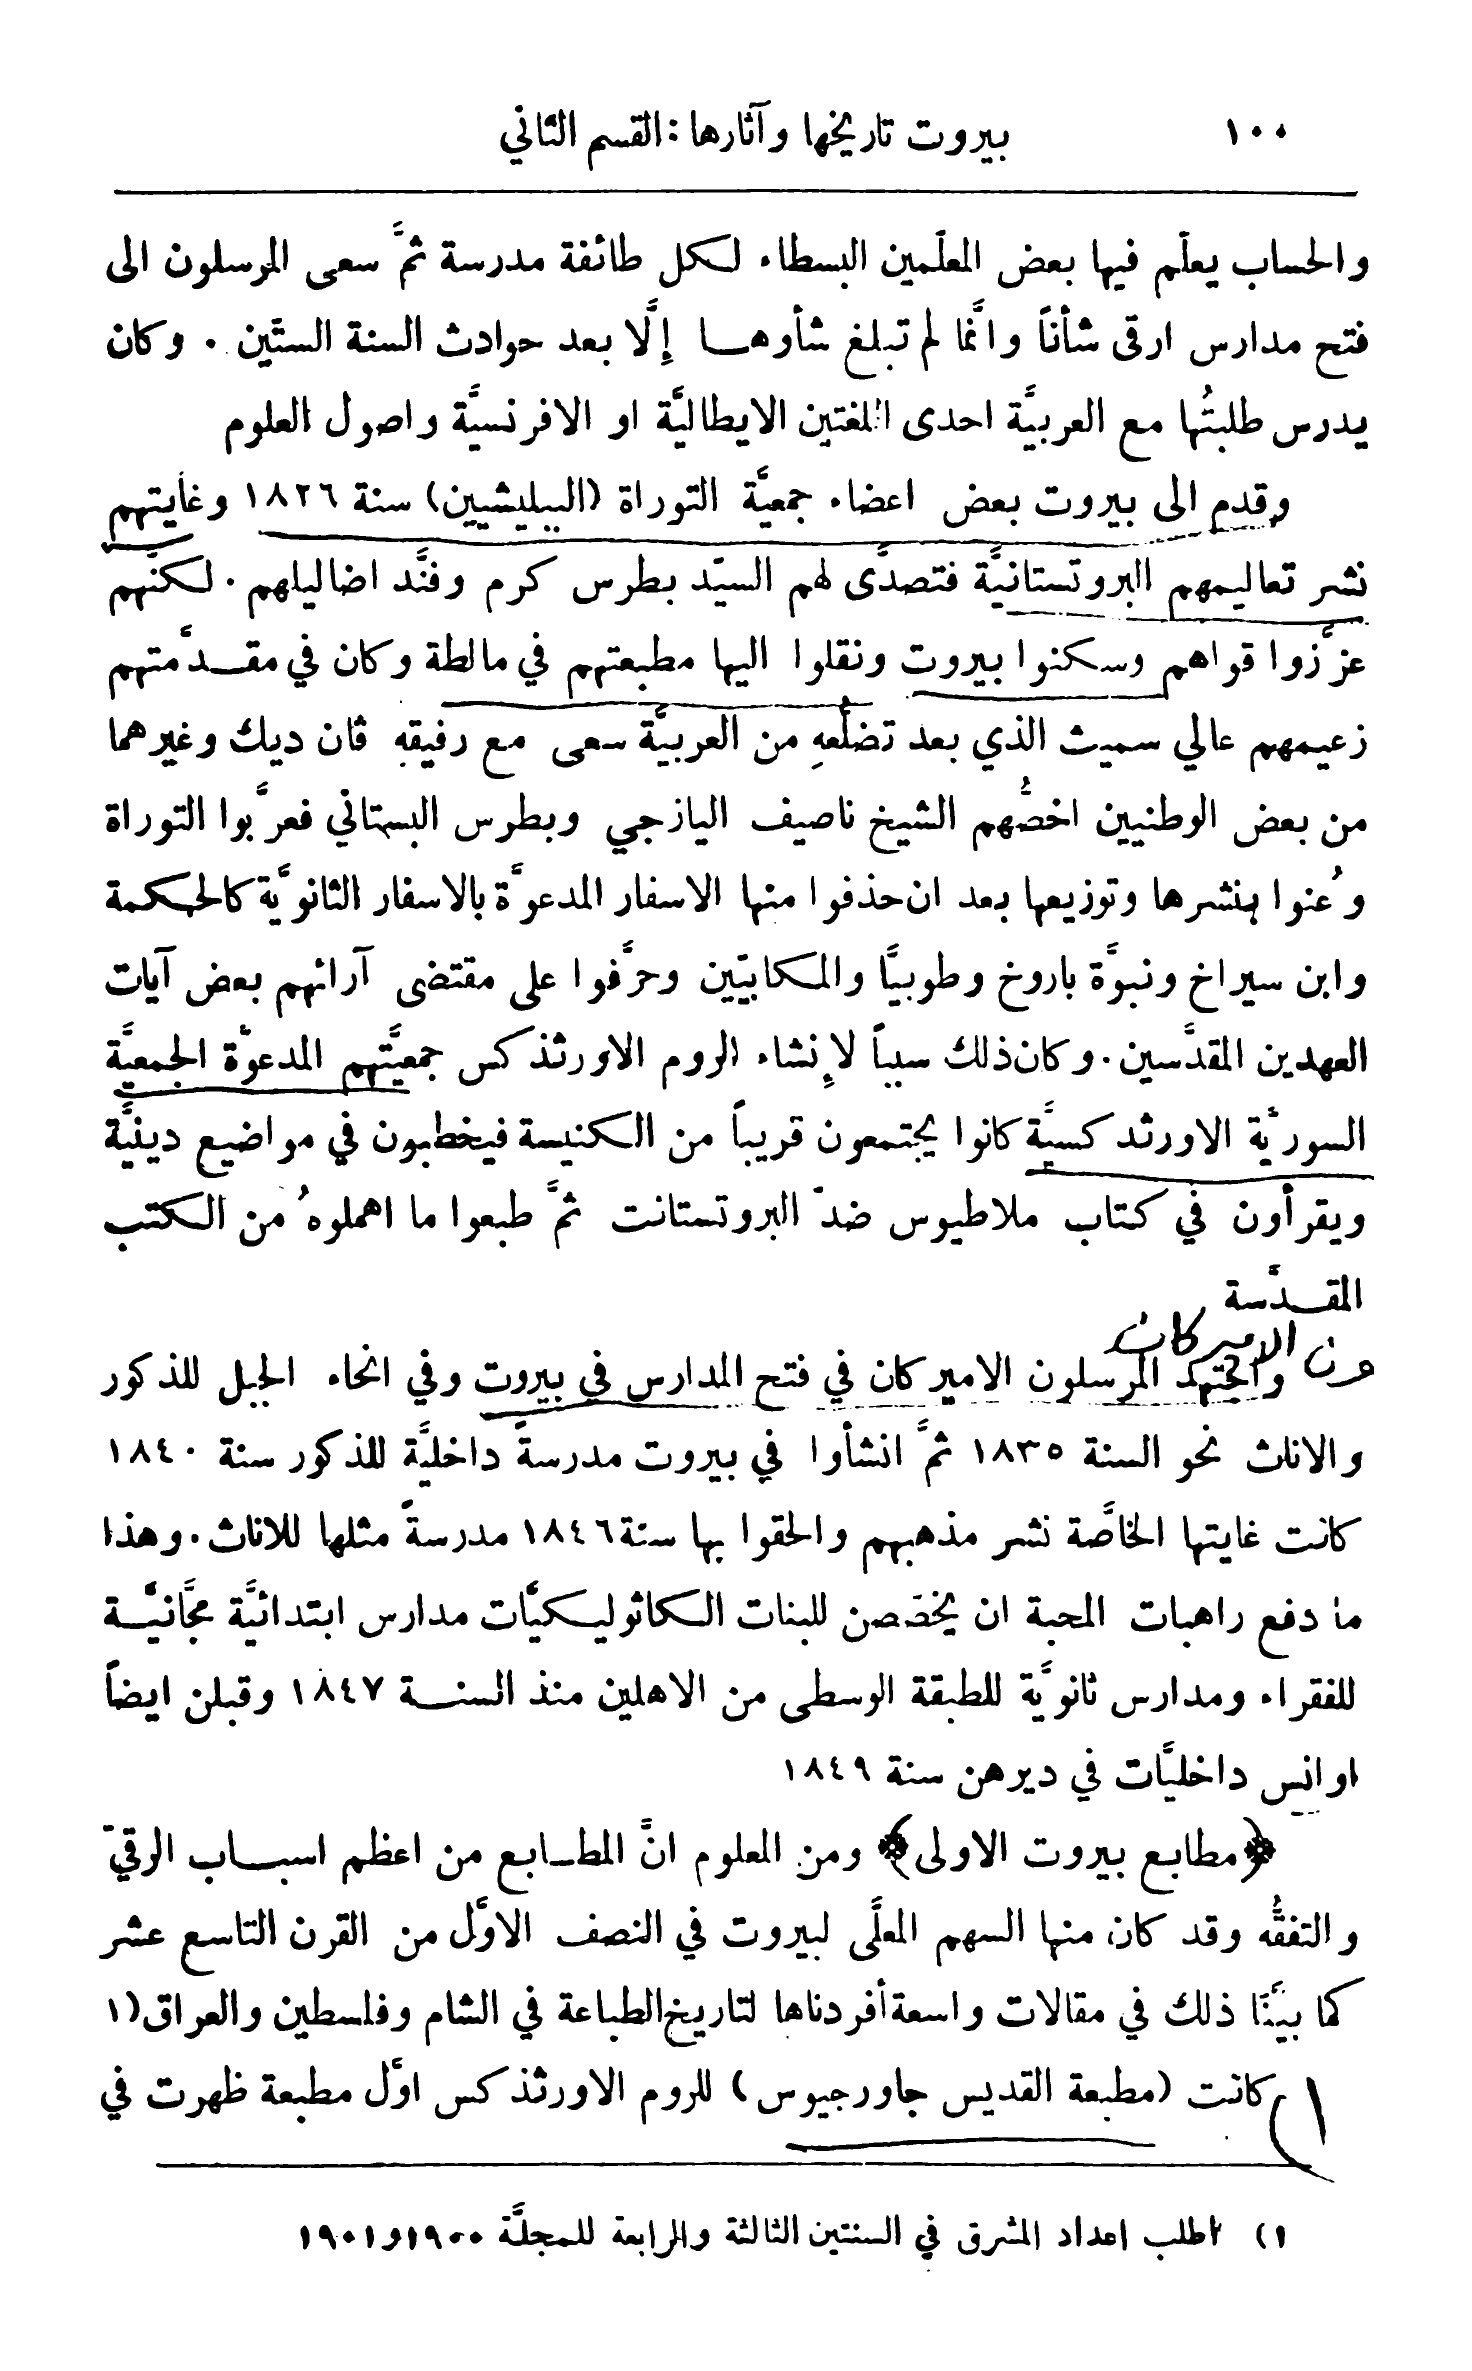 ١٠٠ بيروت تاريخها وآثارها : القسم الثاني
والحساب يعلّم فيها بعض المعلّمين البسطاء لكل طائفة مدرسة ثمَّ سعى المرسلون الى
فتح مدارس ارقى شأناً وانَّما لم تبلغ شأوها إلَّا بعد حوادث السنة الستّين . وكان
يدرس طلبتُها مع العربيَّة احدى اللغتين الايطاليَّة او الافرنسيَّة واصول العلوم
وقدم الى بيروت بعض اعضاء جمعيَّة التوراة (البيليشيين) سنة ١٨٢٦ وغايتهم
نشر تعاليمهم البروتستانيَّة فتصدَّى لهم السيّد بطرس كرم وفنَّد اضاليلهم . لكنَّهم
عزَّزوا قواهم وسكنوا بيروت ونقلوا اليها مطبعتهم في مالطة وكان في مقدَّمتهم
زعيمهم عالي سميث الذي بعد تضلُّعهِ من العربيَّة سعى مع رفيقه ڤان ديك وغيرهما
من بعض الوطنيين اخصُّهم الشيخ ناصيف اليازجي وبطرس البستاني فعرَّبوا التوراة
وُعنوا بنشرها وتوزيعها بعد ان حذفوا منها الاسفار المدعوَّة بالاسفار الثانويَّة كالحكمة
وابن سيراخ ونبوَّة باروخ وطوبيَّا والمكابيّين وحرَّفوا على مقتضى آرائهم بعض آيات
العهدين المقدَّسين . وكان ذلك سبباً لإنشاء الروم الاورثذكس جمعيَّتهم المدعوَّة الجمعيَّة
السوريَّة الاورثذكسيَّة كانوا يجتمعون قريباً من الكنيسة فيخطبون في مواضيع دينيَّة
ويقرأون في كتاب ملاطيوس ضدّ البروتستانت ثمَّ طبعوا ما اهملوهُ من الكتب
المقدَّسة
الاميركان
واجتهد المرسلون الاميركان في فتح المدارس في بيروت وفي انحاء الجبل للذكور
والاناث نحو السنة ١٨٣٥ ثمَّ انشأوا في بيروت مدرسةً داخليَّة للذكور سنة ١٨٤٠
كانت غايتها الخاصَّة نشر مذهبهم والحقوا بها سنة ١٨٤٦ مدرسةً مثلها للاناث . وهذا
ما دفع راهبات المحبة ان يخصّصن للبنات الكاثوليكيَّات مدارس ابتدائيَّة مجَّانيَّة
للفقراء ومدارس ثانويَّة للطبقة الوسطى من الاهلين منذ السنة ١٨٤٧ وقبلن ايضاً
اوانس داخليَّات في ديرهن سنة ١٨٤٩
﴿مطابع بيروت الاولى﴾ ومن المعلوم انَّ المطابع من اعظم اسباب الرقيّ
والتفقُّه وقد كان منها السهم المعلَّى لبيروت في النصف الاوَّل من القرن التاسع عشر
كما بيَّنَّا ذلك في مقالات واسعة أفردناها لتاريخ الطباعة في الشام وفلسطين والعراق (١
١) كانت (مطبعة القديس جاورجيوس) للروم الاورثذكس اوَّل مطبعة ظهرت في
١) اطلب اعداد المشرق في السنتين الثالثة والرابعة للمجلَّة ١٩٠٠ و١٩٠١